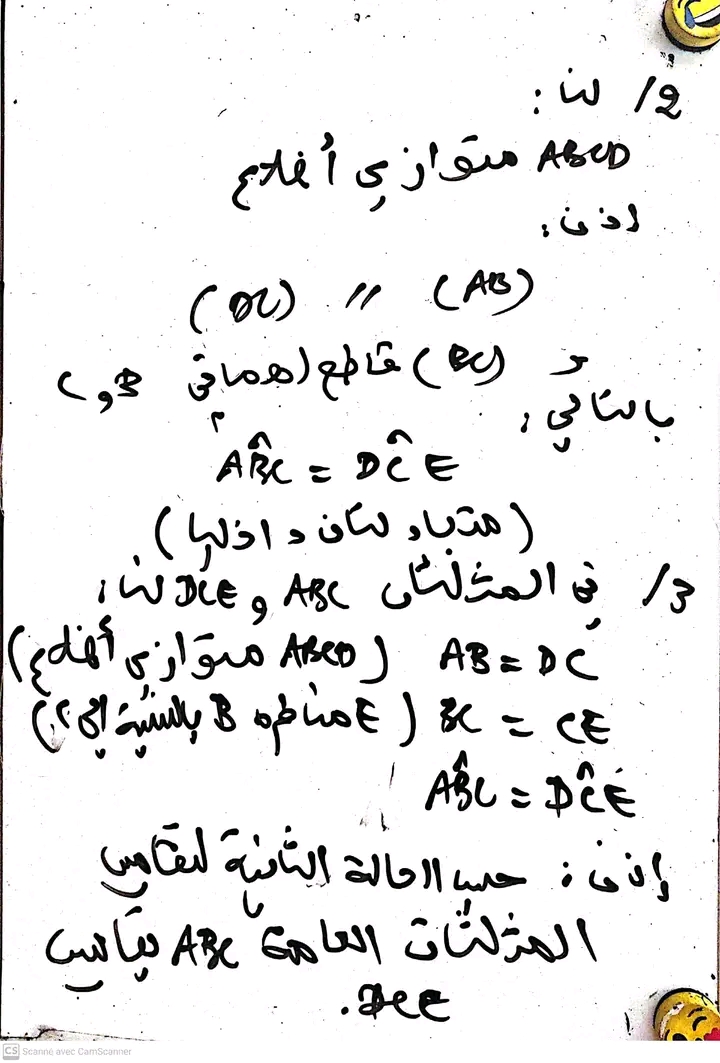 2/ لنا :
ABCD متوازي أضلاع
اذن :
(AB) // (DC)
و (BC) قاطع لهما في B و C
بالتالي :
AB̂C = DĈE
(متبادلتان داخليا)
3/ في المثلثان ABC و DCE لنا :
AB = DC (ABCD متوازي أضلاع)
BC = CE (E مناظرة B بالنسبة إلى C)
AB̂C = DĈE
إذن : حسب الحالة الثانية لتقايس
المثلثات العامة ABC يقايس
DCE.
CS Scanné avec CamScanner